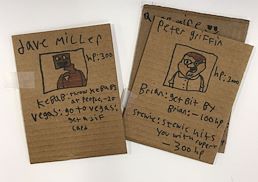 dave miller
hp:300
KEBAB: throw KEBABS
at people, -20
Vegas: go to vegas:
get a
card
Peter griffin
hp:300
Brian: get Bit By
Brian: -100hp
Stewie: stewie hits
you with
-300hp